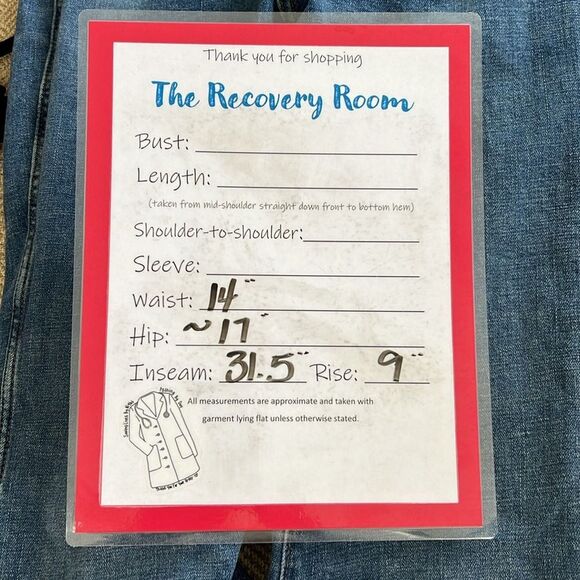 Thank you for shopping
The Recovery Room
Bust:
Length:
(taken from mid-shoulder straight down front to bottom hem)
Shoulder-to-shoulder:
Sleeve:
Waist: 14"
Hip: ~17"
Inseam: 31.5" Rise: 9"
All measurements are approximate and taken with
garment lying flat unless otherwise stated.